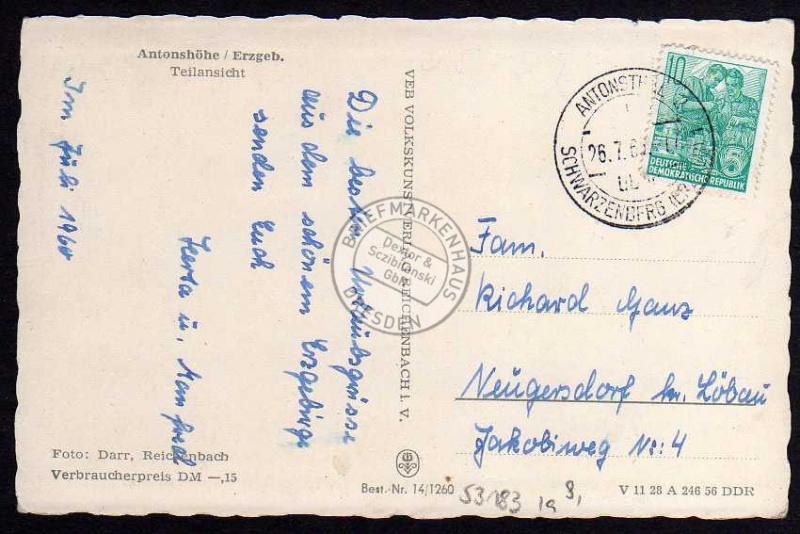 Antonshöhe / Erzgeb.
Teilansicht
Im Juli 1960
Die besten Urlaubsgrüsse
aus dem schönen Erzgebirge
senden Euch
Herta u. Manfred
Foto: Darr, Reichenbach
Verbraucherpreis DM —,15
VEB VOLKSKUNSTVERLAG REICHENBACH i. V.
Best.-Nr. 14/1260
53183 1a
V 11 28 A 246 56 DDR
ANTONSTHAL
26.7.60
SCHWARZENBERG (ERZ
10
5
DEUTSCHE
DEMOKRATISCHE REPUBLIK
Fam.
Richard Ganz
Neugersdorf Kr. Löbau
Jakobiweg Nr. 4
BRIEFMARKENHAUS
Dextor &
Sczibilanski
GbR
DRESDEN